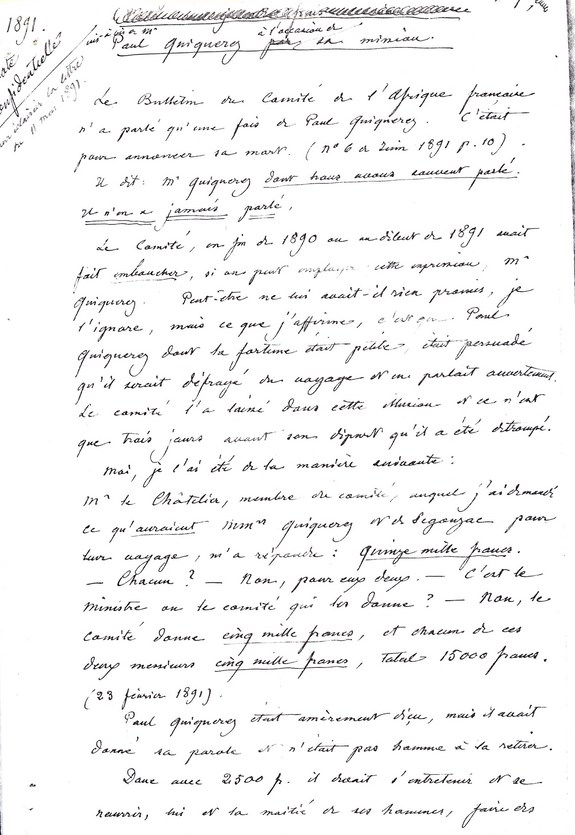 1891.
Confidentielle
vis-à-vis de Mr à l'occasion de
Paul Quiquerez sa mission.
Le Bulletin du Comité de l'Afrique francaise
n'a parlé qu'une fois de Paul Quiquerez. C'était
pour annoncer sa mort. (No 6 de Juin 1891 p. 10).
Il dit: Mr Quiquerez dont nous avons souvent parlé.
Il n'en a jamais parlé.
Le Comité, en fin de 1890 ou au début de 1891 avait
fait embaucher, si on peut employer cette expression, Mr
Quiquerez. Peut-être ne lui avait-il rien promis, je
l'ignore, mais ce que j'affirme, c'est que Paul
Quiquerez dont la fortune était petite, était persuadé
qu'il serait défrayé du voyage et en parlait ouvertement.
Le comité l'a laissé dans cette illusion et ce n'est
que trois jours avant son départ qu'il a été détrompé.
Moi, je l'ai été de la manière suivante:
Mr le Châtelier, membre du comité, auquel j'ai demandé
ce qu'auraient MMrs Quiquerez et de Segonzac pour
leur voyage, m'a répondu: Quinze mille francs.
— Chacun? — Non, pour eux deux. — C'est le
Ministre ou le comité qui les donne? — Non, le
comité donne cinq mille francs, et chacun de ces
deux messieurs cinq mille francs, total 15000 francs.
(23 février 1891).
Paul Quiquerez était amèrement déçu, mais il avait
donné sa parole et n'était pas homme à la retirer.
Donc avec 2500 f. il devait s'entretenir et se
nourrir, lui et la moitié de ses hommes, faire des